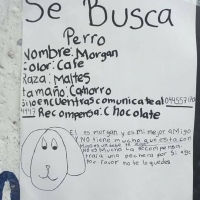 Se Busca
Perro
Nombre: Morgan
Color: Cafe
Raza: Maltes
tamaño: Cahorro
Si lo encuentras comunicate al
Recompensa: Chocolate
El es morgan y es mi mejor amigo
y no tiene mucho que esta con
no es mucho la recompensa
Por favor no te lo quedes